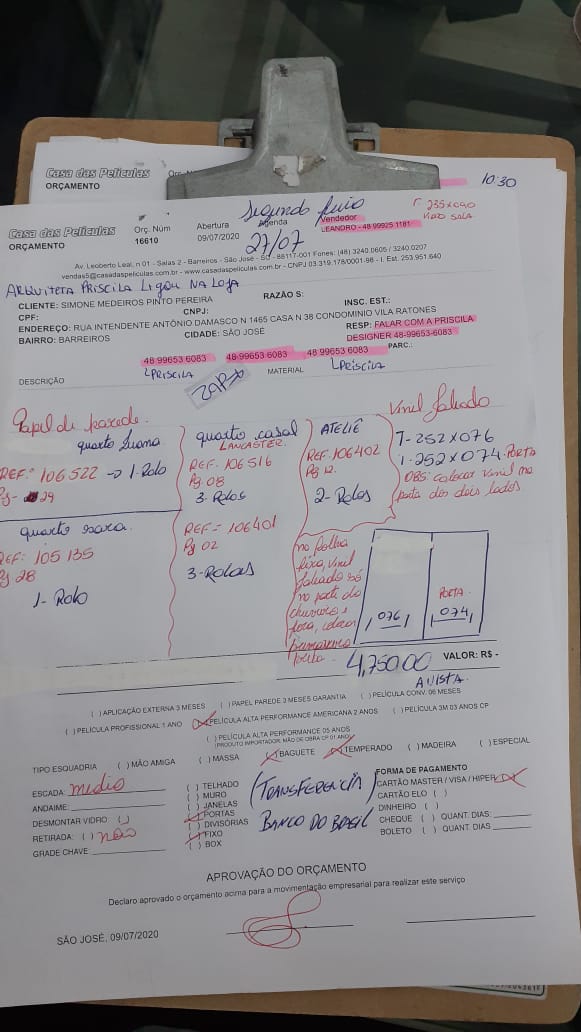 Casa das Películas
ORÇAMENTO
10:30
Casa das Películas
ORÇAMENTO
Orç. Núm
16610
Abertura
09/07/2020
Segunda feira
Agenda
27/07
Vendedor
LEANDRO - 48 99925 1181
235x090
VIDRO SALA
Av. Leoberto Leal, n 01 - Salas 2 - Barreiros - São José - SC - 88117-001 Fones: (48) 3240.0605 / 3240.0207
vendas5@casadaspeliculas.com.br - www.casadaspeliculas.com.br - CNPJ 03.319.178/0001-98 - I. Est. 253.951.640
ARQUITETA PRISCILA LIGOU NA LOJA
CLIENTE: SIMONE MEDEIROS PINTO PEREIRA
RAZÃO S:
CPF:
CNPJ:
INSC. EST.:
ENDEREÇO: RUA INTENDENTE ANTÔNIO DAMASCO N 1465 CASA N 38 CONDOMINIO VILA RATONES
BAIRRO: BARREIROS
CIDADE: SÃO JOSÉ
RESP: FALAR COM A PRISCILA
DESIGNER 48-99653-6083
48 99653 6083
48-99653 6083
48 99653 6083
PARC.:
DESCRIÇÃO
PRISCILA
ZAP
MATERIAL
PRISCILA
Papel de parede
quarto Luana
REF: 106522 → 1-Rolo
Pg- 29
quarto casal
LANCASTER.
REF. 106516
Pg 08
3-Rolos
ATELIÊ
REF. 106402
Pg 12.
2-Rolos
Vinil Jateado
7-252x076
1-252x074-PORTA
OBS: colocar vinil na
porta dos dois lados.
quarto sara.
REF: 105135
Pg 28
1-Rolo
REF= 106401
Pg 02
3-Rolos
na folha
fixa, vinil
jateado só
na parte da
fora, colocar
076
PORTA.
074
4,750.00
VALOR: R$ -
AVISTA.
( ) APLICAÇÃO EXTERNA 3 MESES
( ) PAPEL PAREDE 3 MESES GARANTIA
( ) PELÍCULA CONV. 06 MESES
( ) PELÍCULA PROFISSIONAL 1 ANO
(X) PELÍCULA ALTA PERFORMANCE AMERICANA 2 ANOS
( ) PELÍCULA 3M 03 ANOS CP
( ) PELÍCULA ALTA PERFORMANCE 05 ANOS
(PRODUTO IMPORTADOR, MÃO DE OBRA CP 01 ANO)
TIPO ESQUADRIA
( ) MÃO AMIGA
( ) MASSA
(X) BAGUETE
(X) TEMPERADO
( ) MADEIRA
( ) ESPECIAL
ESCADA: medio
ANDAIME:
DESMONTAR VIDRO ( )
RETIRADA: ( ) não
GRADE CHAVE:
( ) TELHADO
( ) MURO
( ) JANELAS
(X) PORTAS
( ) DIVISÓRIAS
(X) FIXO
( ) BOX
(TRANSFERENCIA)
BANCO DO BRASIL
FORMA DE PAGAMENTO
CARTÃO MASTER / VISA / HIPER (X)
CARTÃO ELO ( )
DINHEIRO ( )
CHEQUE ( ) QUANT. DIAS:
BOLETO ( ) QUANT. DIAS
APROVAÇÃO DO ORÇAMENTO
Declaro aprovado o orçamento acima para a movimentação empresarial para realizar este serviço
SÃO JOSÉ, 09/07/2020